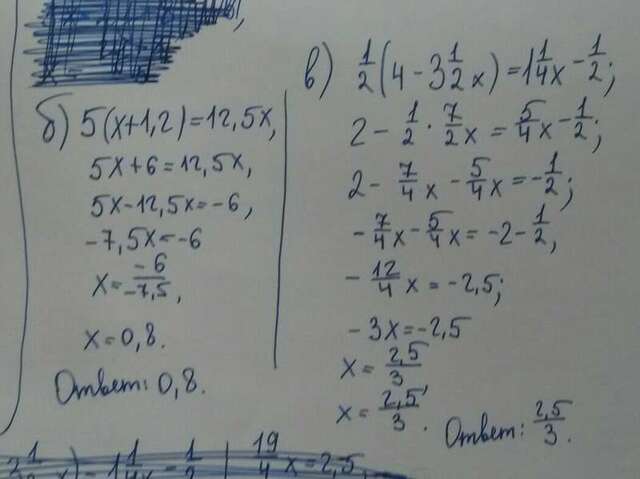 б) 5(x+1,2)=12,5x,
5x+6=12,5x,
5x-12,5x=-6,
-7,5x=-6
x=-6/-7,5,
x=0,8.
Ответ: 0,8.
в) 1/2(4-3 1/2x)=1 1/4x-1/2;
2-1/2·7/2x=5/4x-1/2;
2-7/4x-5/4x=-1/2;
-7/4x-5/4x=-2-1/2,
-12/4x=-2,5;
-3x=-2,5
x=2,5/3,
x=2,5/3.
Ответ: 2,5/3.
19/4x=2,5,